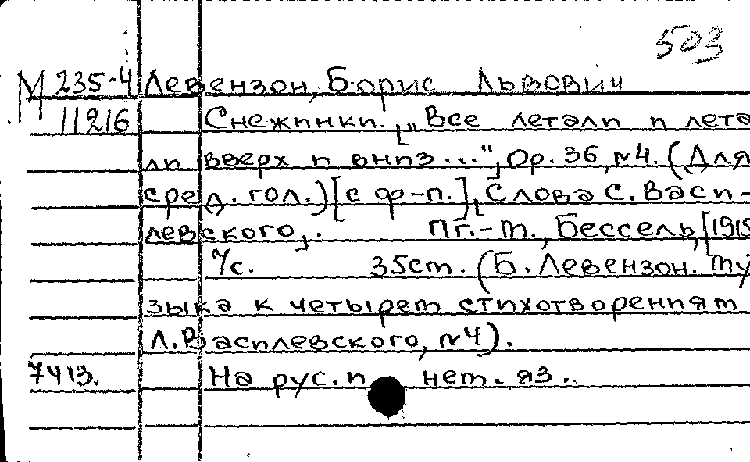 503
М 235-4 Левензон, Борис Львович
11216 Снежинки. „Все летали и лета
ли вверх и вниз...", Ор. 36, №4. (Для
сред. гол.) [с ф-п.], Слова С. Васи-
левского,. Пг.-М., Бессель, [1915
7с. 35см. (Б. Левензон. Му
зыка к четырем стихотворениям
Л. Василевского, №4).
7413. На рус. и нем. яз..